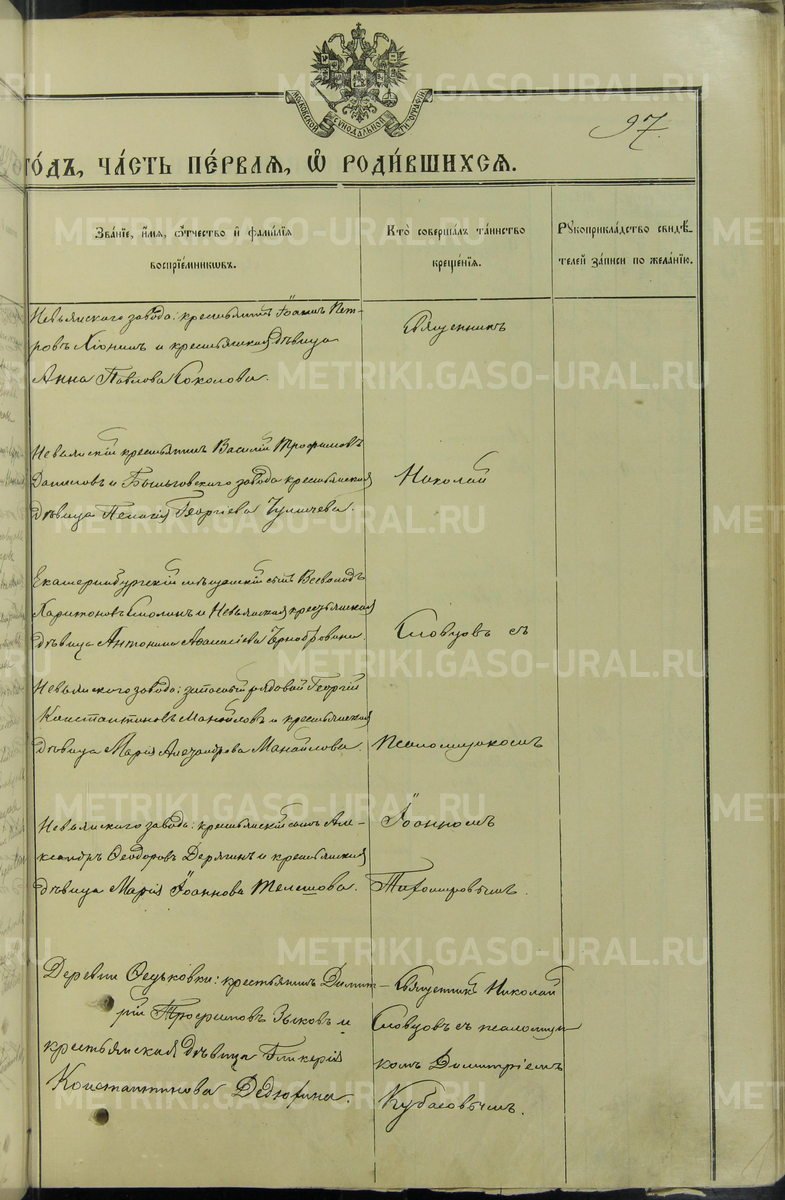 МОСКОВСКОЙ СѴНОДАЛЬНОЙ ТИПОГРАФІИ
97.
ГО́ДЪ, ЧА́СТЬ ПЕ́РВАЯ, Ѽ РОДИ́ВШИХСЯ.
Зва́ніе, и́мя, о́тчество и҆ фами́лія
воспріе́мниковъ.
Кто̀ соверша́лъ та́инство
креще́нія.
Рꙋкоприкла́дство свидѣ́-
телей за́писи по жела́нію.
Невьянского завода: крестьянинъ Іоаннъ Пет-
ровъ и крестьянская дѣвица
Анна Павлова Соколова.
Священникъ
Невьянскій крестьянинъ Василій Трофимовъ
Даниловъ и Быньговского завода крестьянская
дѣвица Пелагія Георгіева
Николай
Екатеринбургскій мѣщанскій сынъ Всеволодъ
Харитоновъ Смолинъ и Невьянская крестьянская
дѣвица Антонина Аѳанасіева Чернобровина.
Словцовъ съ
Невьянского завода: запасный рядовой Георгій
Константиновъ Манойловъ и крестьянская
дѣвица Марія Александрова Манойлова.
псаломщикомъ
Невьянского завода: крестьянскій сынъ Але-
ксандръ Ѳеодоровъ Дерягинъ и крестьянская
дѣвица Марія Іоаннова Телешова.
Іоанномъ
Тихомировымъ.
Деревни Ѳедьковки: крестьянинъ Димит-
рій Трофимовъ Зыковъ и
крестьянская дѣвица Гликерія
Константинова Дедюхина.
Священникъ Николай
Словцовъ съ псаломщи
комъ Димитріемъ
Кубасовымъ.
METRIKI.GASO-URAL.RU